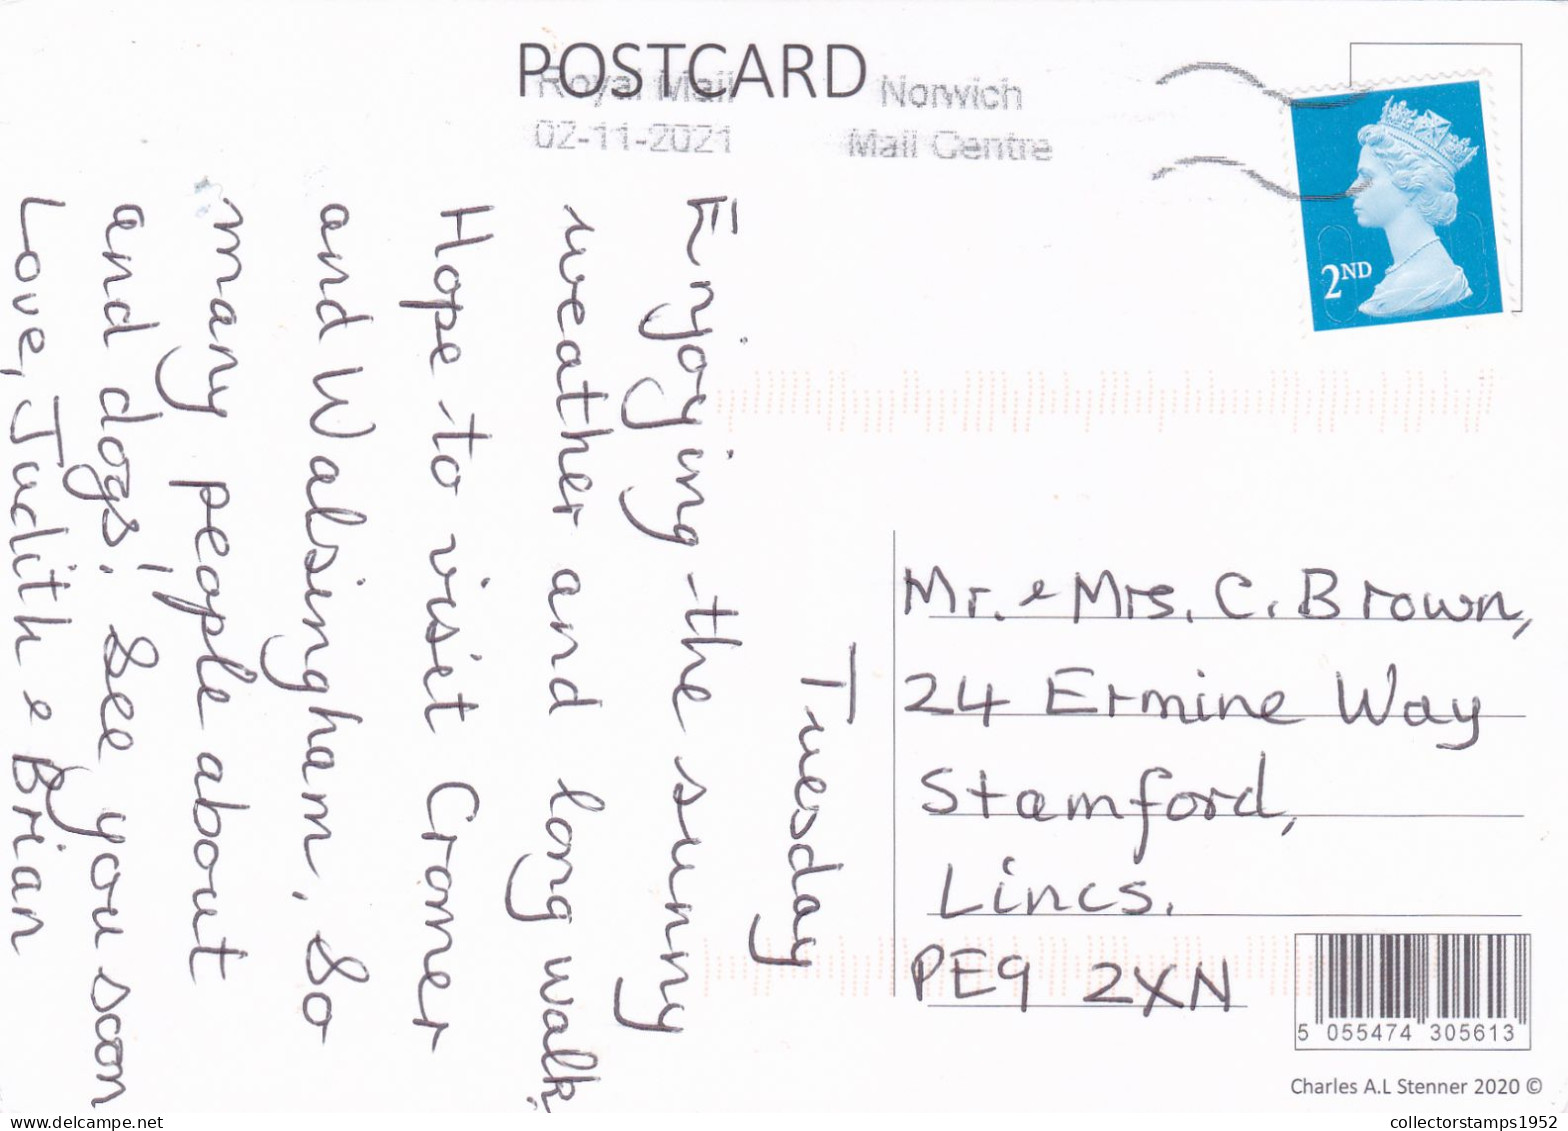 POSTCARD
Royal Mail
02-11-2021
Norwich
Mail Centre
2ND
Tuesday
Enjoying the sunny
weather and long walk,
Hope to visit Cromer
and Walsingham. So
many people about
and dogs! See you soon
Love, Judith & Brian
Mr. & Mrs. C. Brown,
24 Ermine Way
Stamford,
Lincs.
PE9 2XN
5 055474 305613
Charles A.L Stenner 2020 ©
collectorstamps1952